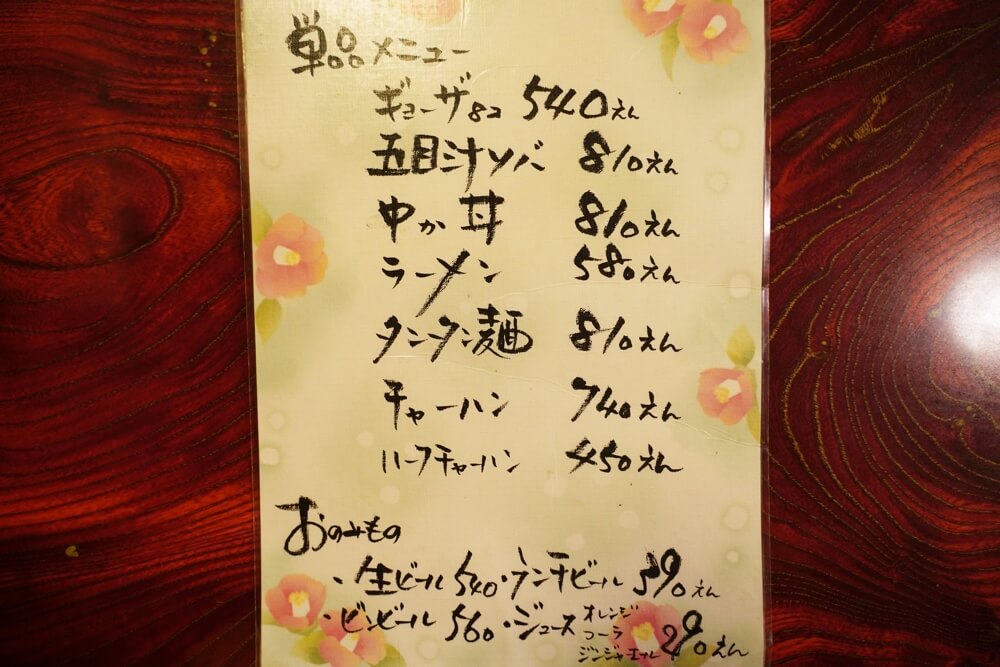 単品メニュー
ギョーザ8コ 540えん
五目汁ソバ 810えん
中か丼 810えん
ラーメン 580えん
タンタン麺 810えん
チャーハン 740えん
ハーフチャーハン 450えん
おのみもの
・生ビール 540・ランチビール 390えん
・ビンビール 560・ジュース オレンジ
コーラ
ジンジャエール 290えん